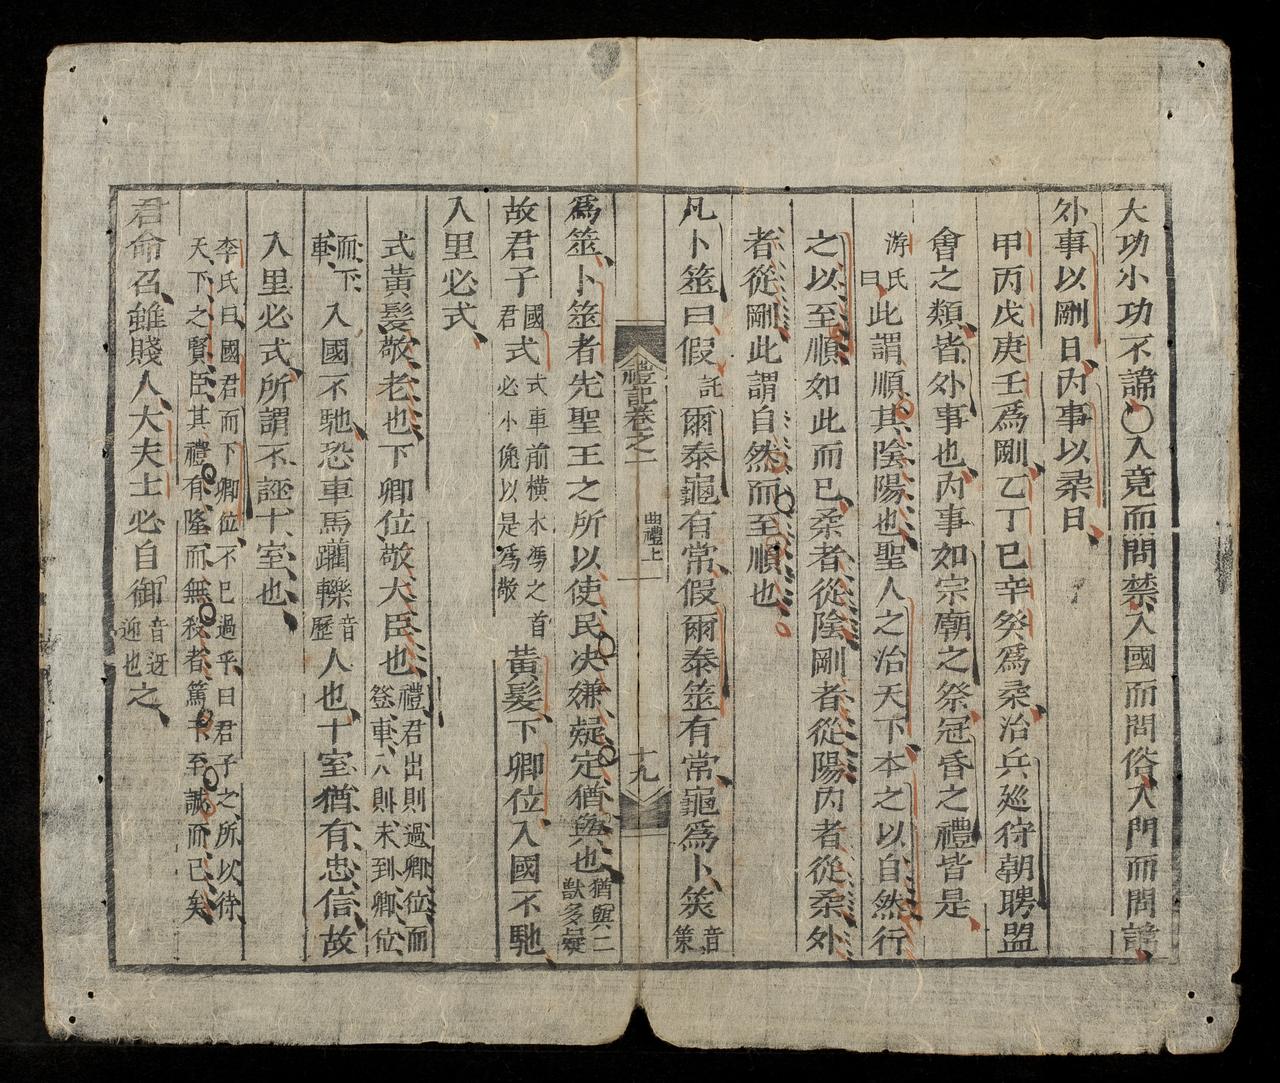 大功小功不諱〇入竟而問禁入國而問俗入門而問諱
外事以剛日內事以柔日
甲丙戊庚壬爲剛乙丁巳辛癸爲柔治兵巡狩朝聘盟
會之類皆外事也內事如宗廟之祭冠昏之禮皆是
游氏曰此謂順其陰陽也聖人之治天下本之以自然行
之以至順如此而已柔者從陰剛者從陽內者從柔外
者從剛此謂自然而至順也
凡卜筮曰假託爾泰龜有常假爾泰筮有常龜爲卜筴音策
禮記卷之一 曲禮上 十九
爲筮卜筮者先聖王之所以使民决嫌疑定猶與也猶與二獸多疑
故君子國君式式車前橫木馮之首必小俛以是爲敬黃髮下卿位入國不馳
入里必式
式黃髮敬老也下卿位敬大臣也禮君出則過卿位而登車入則未到卿位
而下車入國不馳恐車馬躪轢音歷人也十室猶有忠信故
入里必式所謂不誣十室也
李氏曰國君而下卿位不已過乎曰君子之所以待
天下之賢臣其禮有隆而無殺者篤于至誠而已矣
君命召雖賤人大夫士必自御音迓迎也之